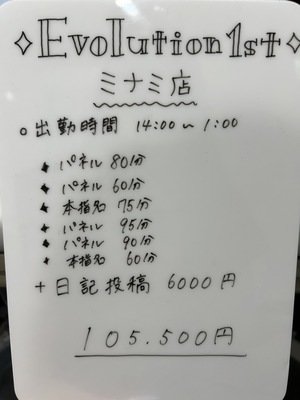 ✧Evolution1st✧
ミナミ店
○出勤時間 14:00〜1:00
✦ パネル 80分
✦ パネル 60分
✦ 本指名 75分
✦ パネル 95分
✦ パネル 90分
✦ 本指名 60分
+日記投稿 6000円
105.500円